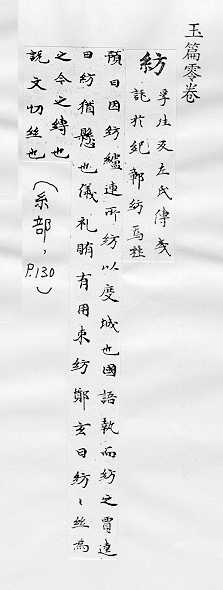 玉篇零卷
紡
孚往反左氏傳
託於紀鄣紡焉杜
預曰因紡纑連所紡以度城也國語執而紡之賈逵
曰紡猶懸也儀礼賄有用束紡鄭玄曰紡〻絲為
之今之縳也
說文切絲也
（糸部，P.130）